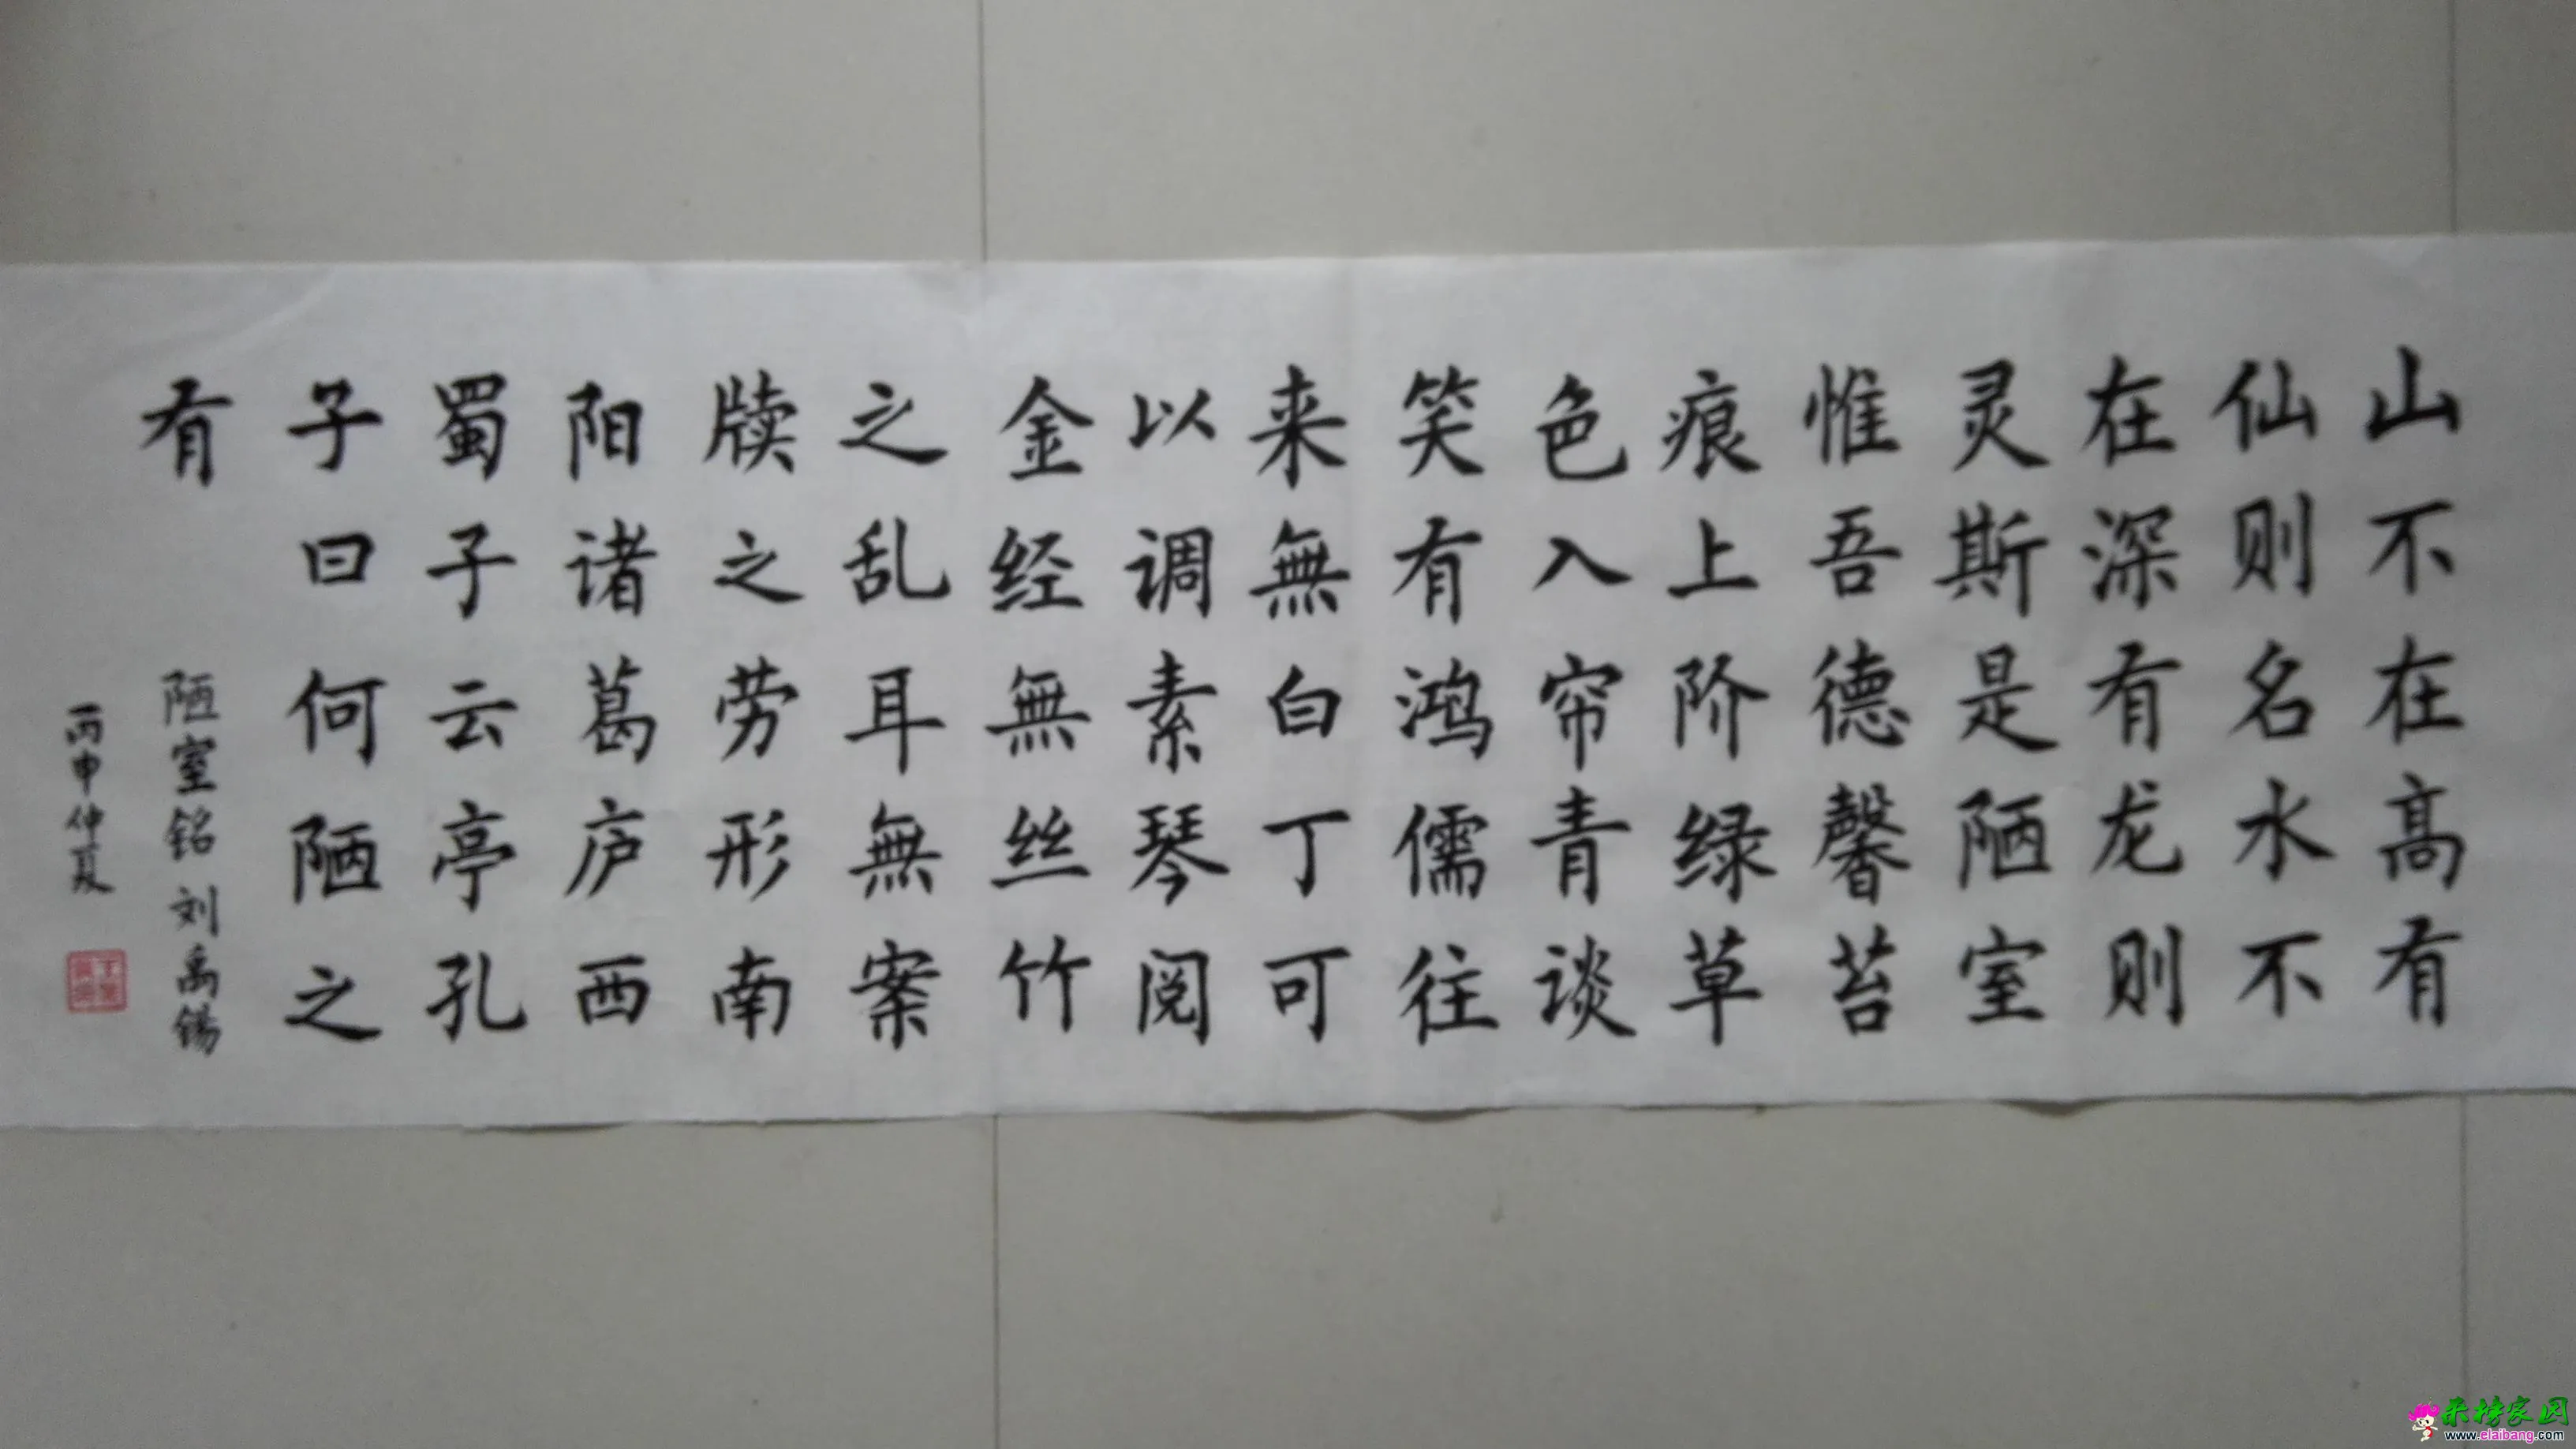 山不在高有
仙则名水不
在深有龙则
灵斯是陋室
惟吾德馨苔
痕上阶绿草
色入帘青谈
笑有鸿儒往
来無白丁可
以调素琴阅
金经無丝竹
之乱耳無案
牍之劳形南
阳诸葛庐西
蜀子云亭孔
子曰何陋之
有
陋室铭刘禹锡
丙申仲夏
来榜家园
www.elaibang.com